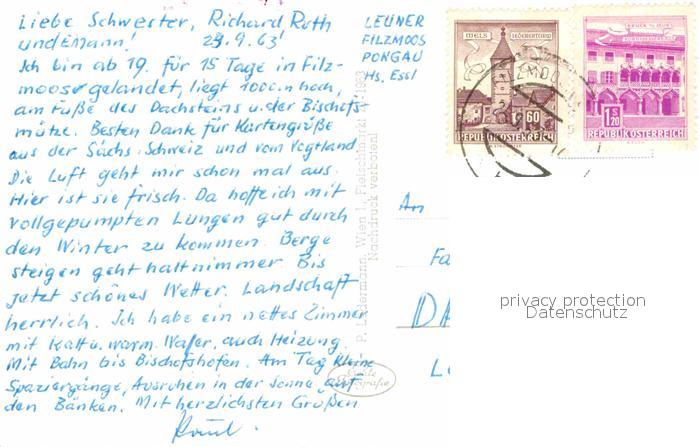 Liebe Schwester, Richard Ruth
und EMann! 23.9.63
Ich bin ab 19. für 15 Tage in Filz-
moos gelandet, liegt 1000 m hoch,
am Fuße des Dachsteins u. der Bischofs-
mütze. Besten Dank für Kartengrüße
aus der Sächs. Schweiz und vom Vogtland
Die Luft geht mir schon mal aus.
Hier ist sie frisch. Da hoffe ich mit
vollgepumpten Lungen gut durch
den Winter zu kommen. Berge
steigen geht halt nimmer. Bis
jetzt schönes Wetter. Landschaft
herrlich. Ich habe ein nettes Zimmer
mit Kalt u. warm. Waßer, auch Heizung.
Mit Bahn bis Bischofshofen. Am Tag kleine
Spaziergänge, Ausruhen in der Sonne auf
den Bänken. Mit herzlichsten Grüßen
Paul.
LEUNER
FILZMOOS
PONGAU
Hs. Essl
WELS LEDERERTURM
1.60
REPUBLIK ÖSTERREICH
1 S 20
REPUBLIK ÖSTERREICH
Nachdruck verboten!
An
Fa
DA
L
privacy protection
Datenschutz
Echte
Fotografie